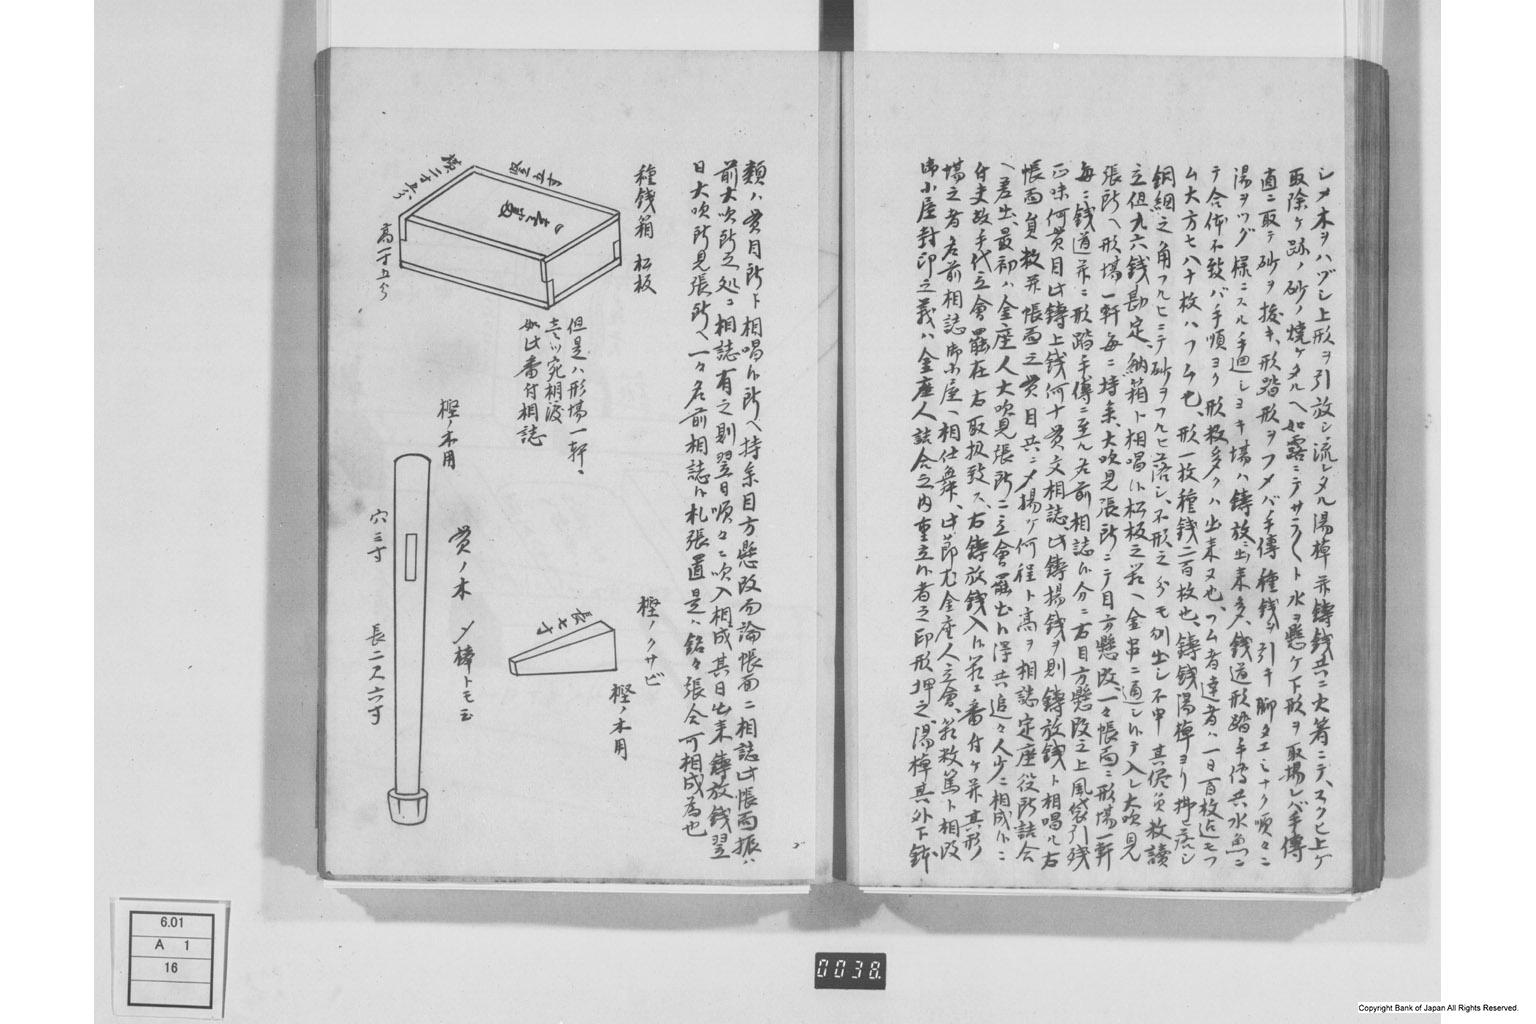 シメ木ヲハヅシ上形ヲ引放シ流レタル湯棹并鋳銭共ニ大箸ニテスクヒ上ケ
取除ケ跡ノ砂ノ焼ケタルヘ如露ニテサラ〱ト水ヲ懸ケ下形ヲ取場レバ手傳
直ニ取テ砂ヲ抜キ、形踏形ヲフメバ手傳種銭ヲ引キ脚タエミナク順々ニ
湯ヲツグ様ニスル手廻シヨキ場ハ鋳放出来多、銭道形踏手傳共水魚ニ
テ合体不致バ手順ヨク形数多クハ出来又也、フム者達者ハ一日百枚迄モフ
ム大方七八十枚ハフム也、形一枚種銭二百枚也、鋳銭湯棹ヨリ捓キ落シ
銅網之角フルヒニテ砂ヲフルヒ落シ、不形之分モ別出シ不申其儘員数讀
立但九六銭勘定、納箱ト相唱候松板之箱ヘ金串ニ通シ候テ入レ大吹見
張所ヘ形場一軒毎ニ持参、大吹見張所ニテ目方懸改、一々帳面ニ形場一軒
毎ニ銭道并ニ形踏手傳ニ至ル名前相誌候分ニ右目方懸改之上風袋引残
正味何貫目此鋳上銭何十貫文相誌、此鋳揚銭ヲ則鋳放銭ト相唱ル右
帳面員数并帳面之貫目共ニメ揚ケ何程ト高ヲ相誌定座役所詰合
ヘ差出、最初ハ金座人大吹見張所ニ立會罷出候得共追々人少ニ相成候ニ
付吏故手代立會罷在右取扱致ス、右鋳放銭入候箱エ番付ケ并其形
場之者名前相誌御小屋ヘ相仕舞、此節尤金座人立會、箱数篤ト相改
御小屋封印之義ハ金座人詰合之内重立候者之印形押之、湯棹其外下鉢
類ハ貫目所ト相唱候所ヘ持参目方懸改而論帳面ニ相誌此帳面振ハ
前大吹所之処ニ相誌有之則翌日順々ニ吹入相成其日出来鋳放銭翌
日大吹所見張所ヘ一々名前相誌候札張置是ハ銘々張合可相成為也
種銭箱 松板
高一寸五分
但是ハ形場一軒ニ
壱ツ宛相渡
如此番付相誌
樫ノ木用
貫ノ木 〆棒トモ云
穴三寸
長二尺六寸
樫ノクサビ
長七寸
樫ノ木用
6.01
A 1
16
0038
Copyright Bank of Japan All Rights Reserved.